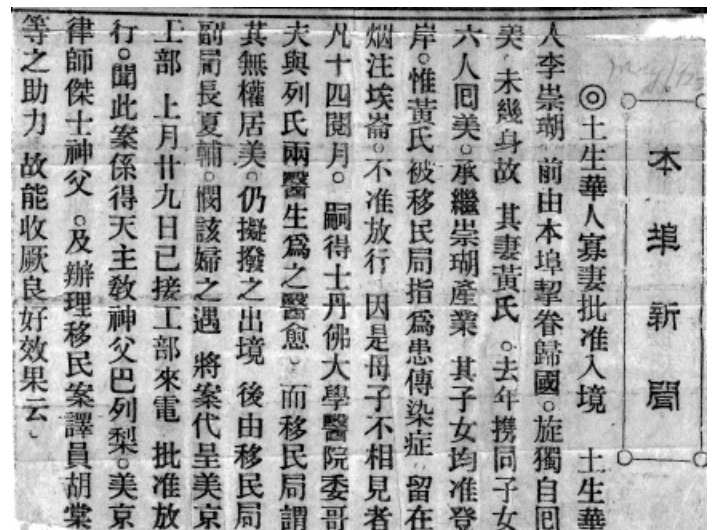 本埠新聞
◎土生華人寡妻批准入境 土生華
人李崇瑚 前由本埠挈眷歸國。旋獨自囘
美、未幾身故 其妻黃氏。去年携同子女
六人囘美。承繼崇瑚產業 其子女均准登
岸。惟黃氏被移民局指爲患傳染症、留在
烟注埃崙。不准放行 因是母子不相見者
凡十四閱月。嗣得士丹佛大學醫院委哥
夫與列氏兩醫生爲之醫愈、而移民局謂
其無權居美。仍擬撥之出境 後由移民局
副局長夏輔。憫該婦之遇 將案代呈美京
工部 上月廿九日已接工部來電 批准放
行。聞此案係得天主敎神父巴列梨。美京
律師傑士神父。及辦理移民案譯員胡棠
等之助力 故能收厥良好效果云、